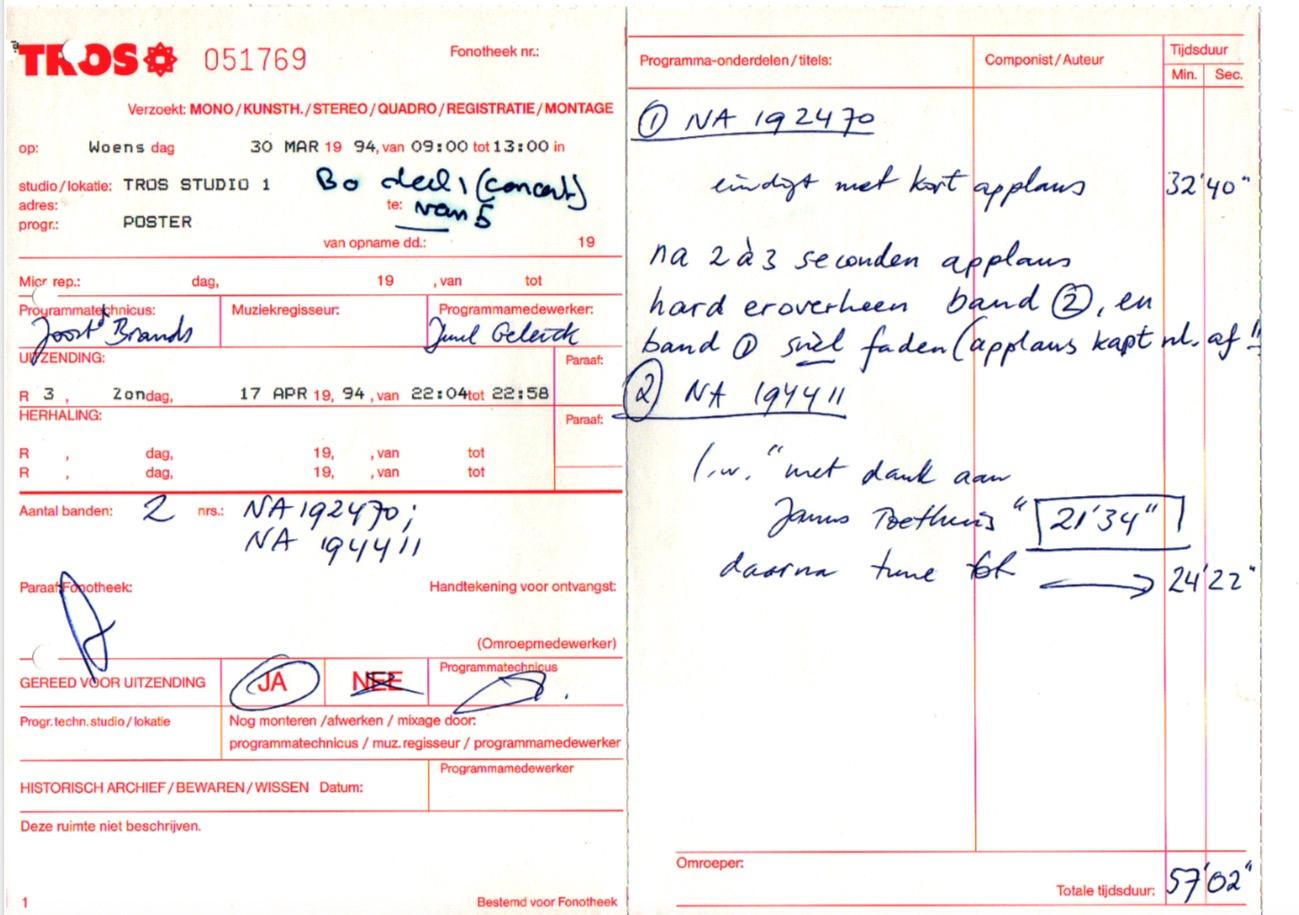 TROS 051769 Fonotheek nr.:
Verzoekt: MONO/KUNSTH./STEREO/QUADRO/REGISTRATIE/MONTAGE
op: Woens dag 30 MAR 19 94, van 09:00 tot 13:00 in
studio/lokatie: TROS STUDIO 1 Bo deel 1 (concert)
adres: te: van 5
progr.: POSTER
van opname dd.: 19
Micr rep.: dag, 19 , van tot
Programmatechnicus: Muziekregisseur: Programmamedewerker:
Joost Brands
UITZENDING: Paraaf:
R 3 , Zondag, 17 APR 19, 94 , van 22:04 tot 22:58
HERHALING: Paraaf:
R , dag, 19, , van tot
R , dag, 19, , van tot
Aantal banden: 2 nrs.: NA 192470;
NA 194411
Paraaf Fonotheek: Handtekening voor ontvangst:
(Omroepmedewerker)
GEREED VOOR UITZENDING JA NEE Programmatechnicus
Progr. techn. studio/lokatie Nog monteren/afwerken/mixage door:
programmatechnicus/muz. regisseur/programmamedewerker
Programmamedewerker
HISTORISCH ARCHIEF/BEWAREN/WISSEN Datum:
Deze ruimte niet beschrijven.
1 Bestemd voor Fonotheek
Programma-onderdelen/titels: Componist/Auteur Tijdsduur
Min. Sec.
① NA 192470
eindigt met kort applaus 32'40"
na 2 à 3 seconden applaus
hard eroverheen band ②, en
band ① snel faden (applaus kapt nl. af!!
② NA 194411
l.w. "met dank aan
"21'34"
daarna tune tot → 24'22"
Omroeper:
Totale tijdsduur: 57'02"